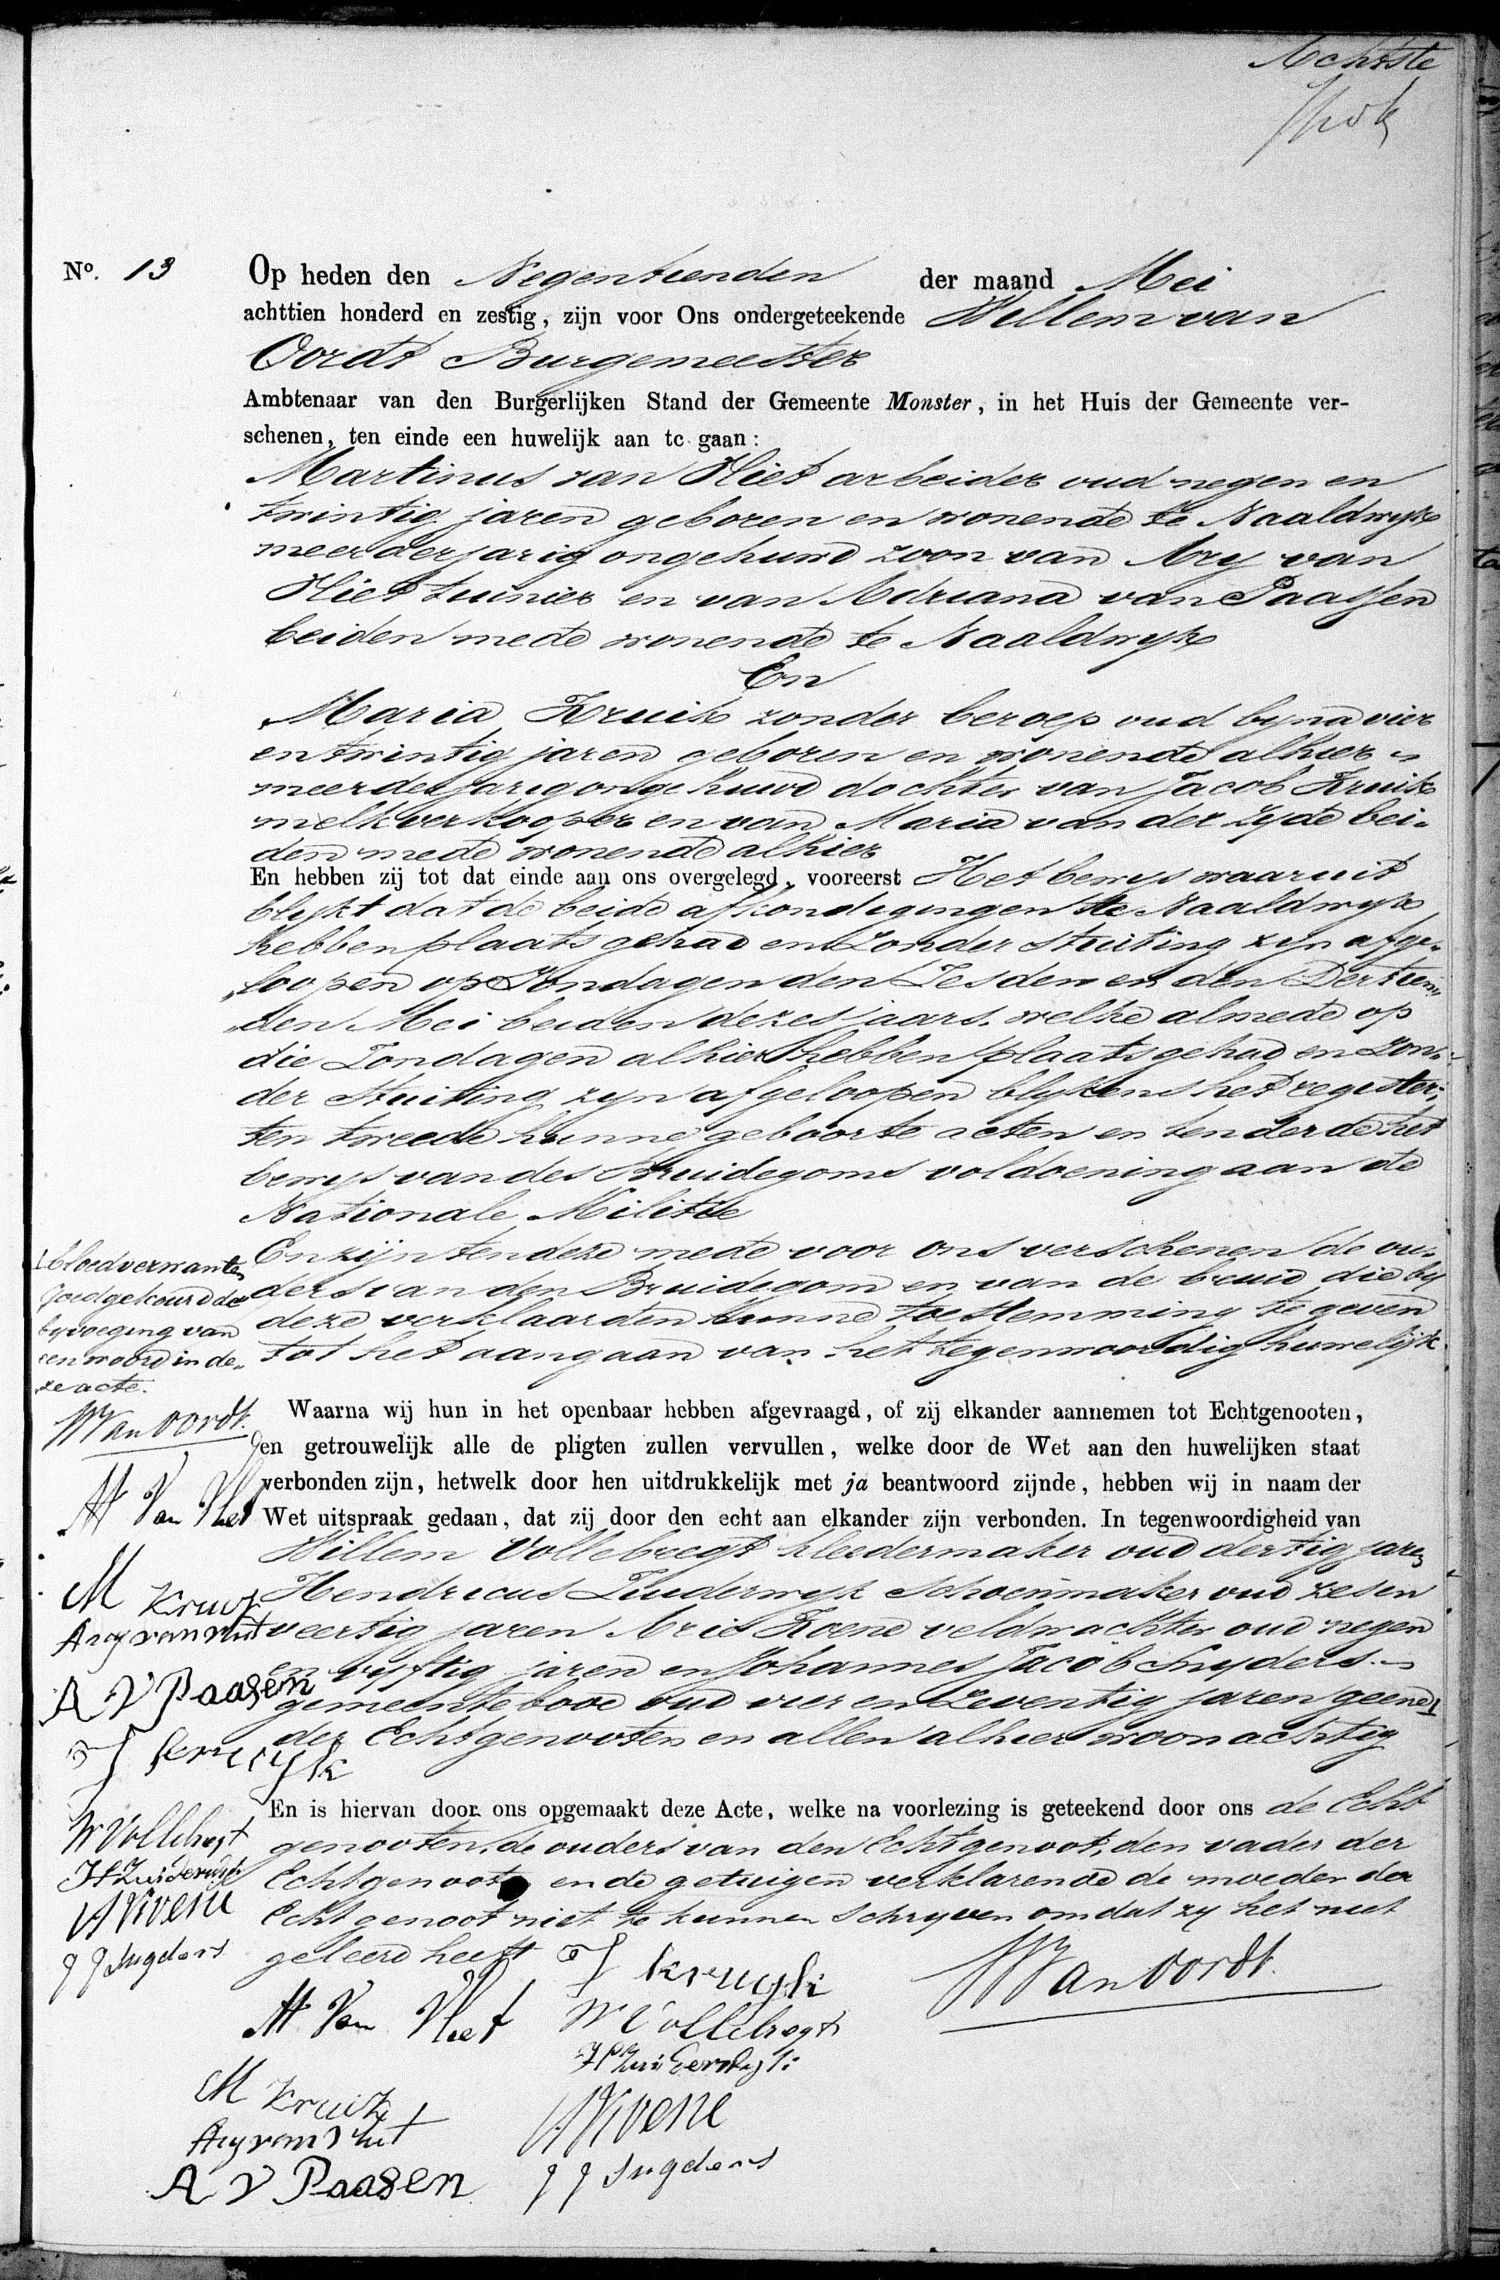 Achtste
No. 13
Op heden den Negentienden der maand Mei
achttien honderd en zestig, zijn voor Ons ondergeteekende Willem van
Oordt Burgemeester
Ambtenaar van den Burgerlijken Stand der Gemeente Monster, in het Huis der Gemeente ver-
schenen, ten einde een huwelijk aan te gaan:
Martinus van Vliet arbeider oud negen en
twintig jaren geboren en wonende te Naaldwyk
meerderjarig ongehuwd zoon van Ary van
Vliet tuinier en van Adriana van Paassen
beiden mede wonende te Naaldwyk
En
Maria Kruik zonder beroep oud byna vier
en twintig jaren geboren en wonende alhier
meerderjarig ongehuwd dochter van Jacob Kruik
melkverkooper en van Maria van der Zyde bei-
den mede wonende alhier
En hebben zij tot dat einde aan ons overgelegd, vooreerst Het bewys waaruit
blykt dat de beide afkondigingen te Naaldwyk
hebben plaats gehad en zonder stuiting zyn afge-
loopen op Zondagen den Zesden en den Dertien-
den Mei beiden dezes jaars, welke almede op
die Zondagen alhier hebben plaats gehad en zon-
der stuiting zyn afgeloopen blykens het register;
ten tweede hunne geboorte acten en ten derde het
bewys van des Bruidegoms voldoening aan de
Nationale Militie
En zijn ten deze mede voor ons verschenen de ou-
ders van den Bruidegom en van de bruid die by
deze verklaarden hunne toestemming te geven
tot het aangaan van het tegenwoordig huwelijk.
bloedverwanten
Goedgekeurd de
byvoeging van
een woord in de-
ze acte.
W Van Oordt.
M Van Vliet
M Kruik
Ary van vliet
A V Paasen
J kruyk
W Vollebregt
H Zuiderwijk
A Koene
J J Snyders
Waarna wij hun in het openbaar hebben afgevraagd, of zij elkander aannemen tot Echtgenooten,
en getrouwelijk alle de pligten zullen vervullen, welke door de Wet aan den huwelijken staat
verbonden zijn, hetwelk door hen uitdrukkelijk met ja beantwoord zijnde, hebben wij in naam der
Wet uitspraak gedaan, dat zij door den echt aan elkander zijn verbonden. In tegenwoordigheid van
Willem Vollebregt kleedermaker oud dertig jaren
Hendricus Zuiderwyk Schoenmaker oud zesen
veertig jaren Arie Koene veldwachter oud negen
en vyftig jaren en Johannes Jacob Snyders
gemeentebode oud vier en zeventig jaren geene
der Echtgenooten en allen alhier woonachtig
En is hiervan door ons opgemaakt deze Acte, welke na voorlezing is geteekend door ons de Echt
genooten, de ouders van den Echtgenoot, den vader der
Echtgenoote en de getuigen verklarende de moeder der
Echtgenoot niet te kunnen schryven omdat zy het niet
geleerd heeft
J kruyk
W Van Oordt.
M Van Vliet
W Vollebregt
H Zuiderwyk
M Kruik
A Koene
Ary van Vliet
A V Paasen
J J Snyders